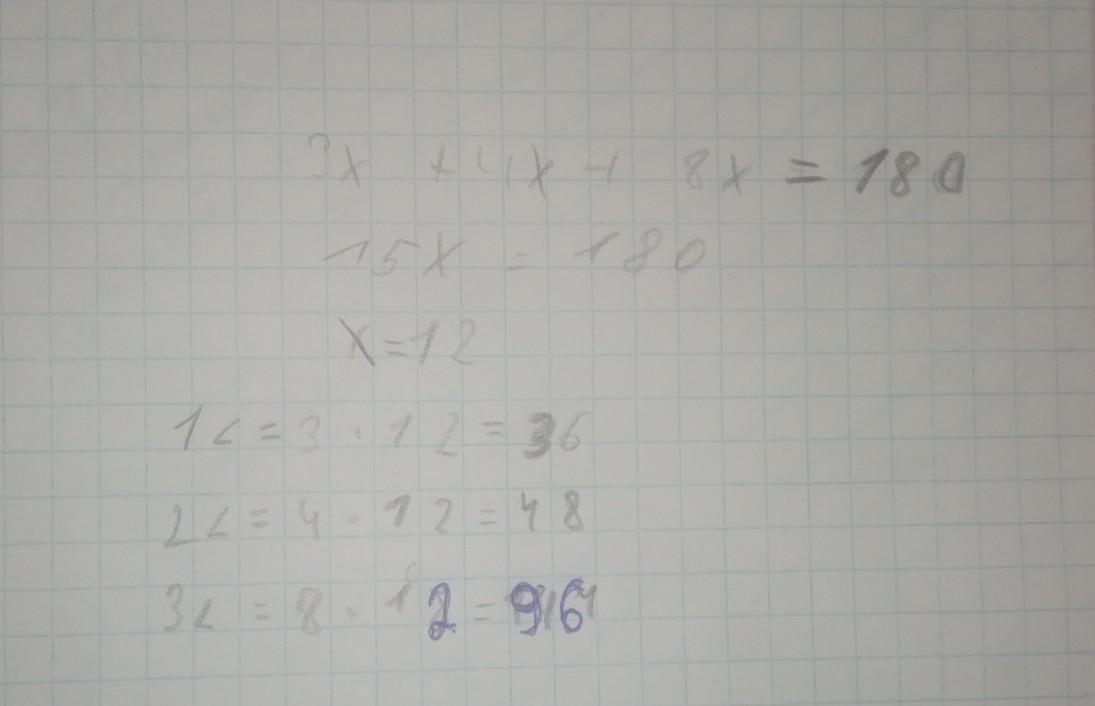 3x + 4x + 8x = 180
15x = 180
x = 12
1< = 3 · 12 = 36
2< = 4 · 12 = 48
3< = 8 · 12 = 96